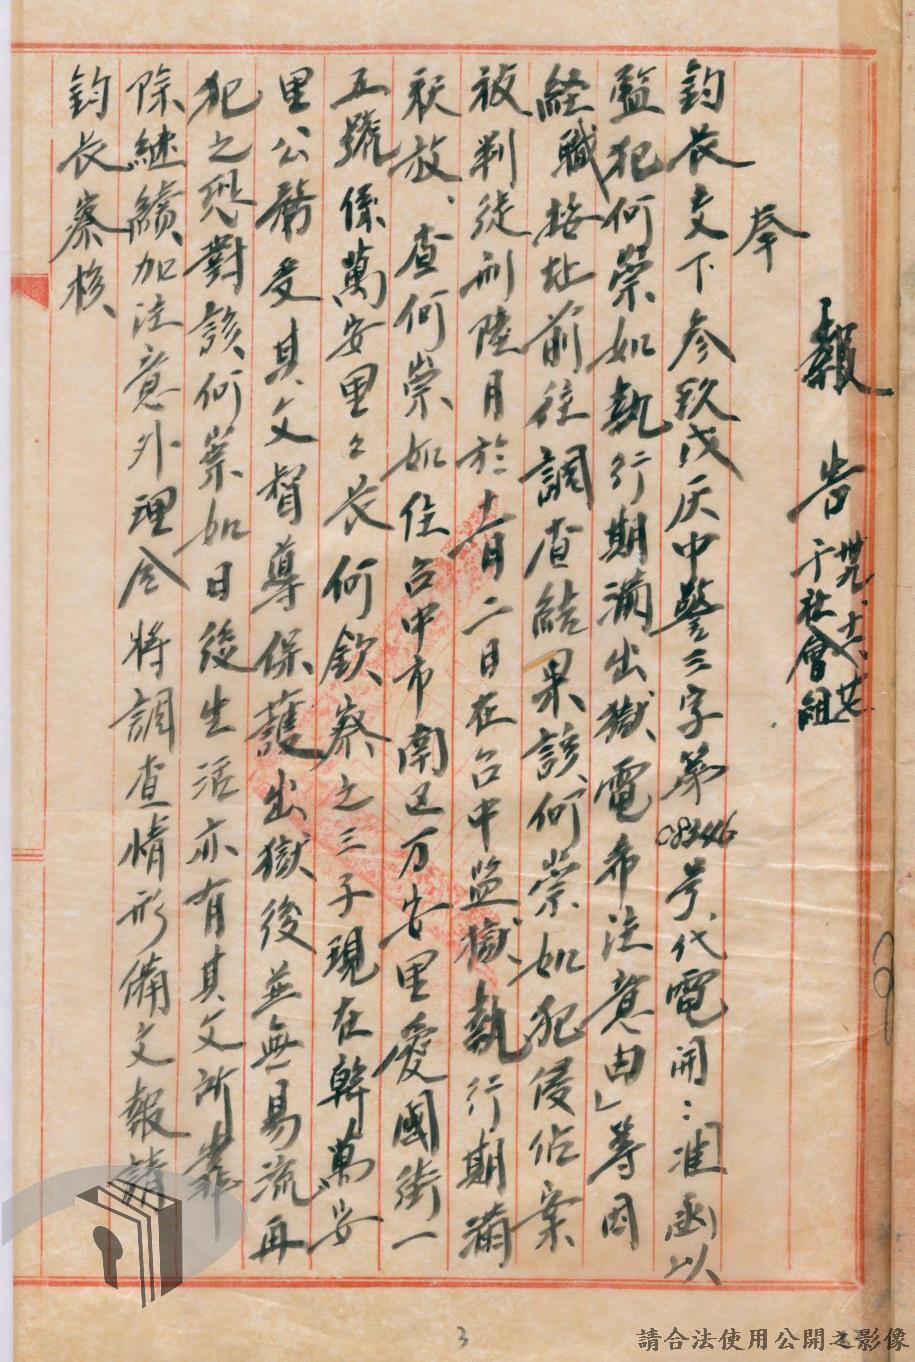 報告 卅九、十一、廿七 于社會組
奉
鈞長交下参玖戌庆中警三字第08346号代電開：准函以
監犯何崇如執行期滿出獄電希注意由」等因
経職按址前往調查結果該何崇如犯侵佔案
被判徒刑陸月於十一月二日在台中监獄執行期滿
釈放、查何崇如住台中市南区万安里愛國街一
五號係萬安里々長何欽察之三子現在幹萬安
里公務受其父督導保護出獄後並無易流再
犯之恐對該何崇如日後生活亦有其父所靠
除継續加注意外理合将調查情形備文報請
鈞長察核
3
請合法使用公開之影像